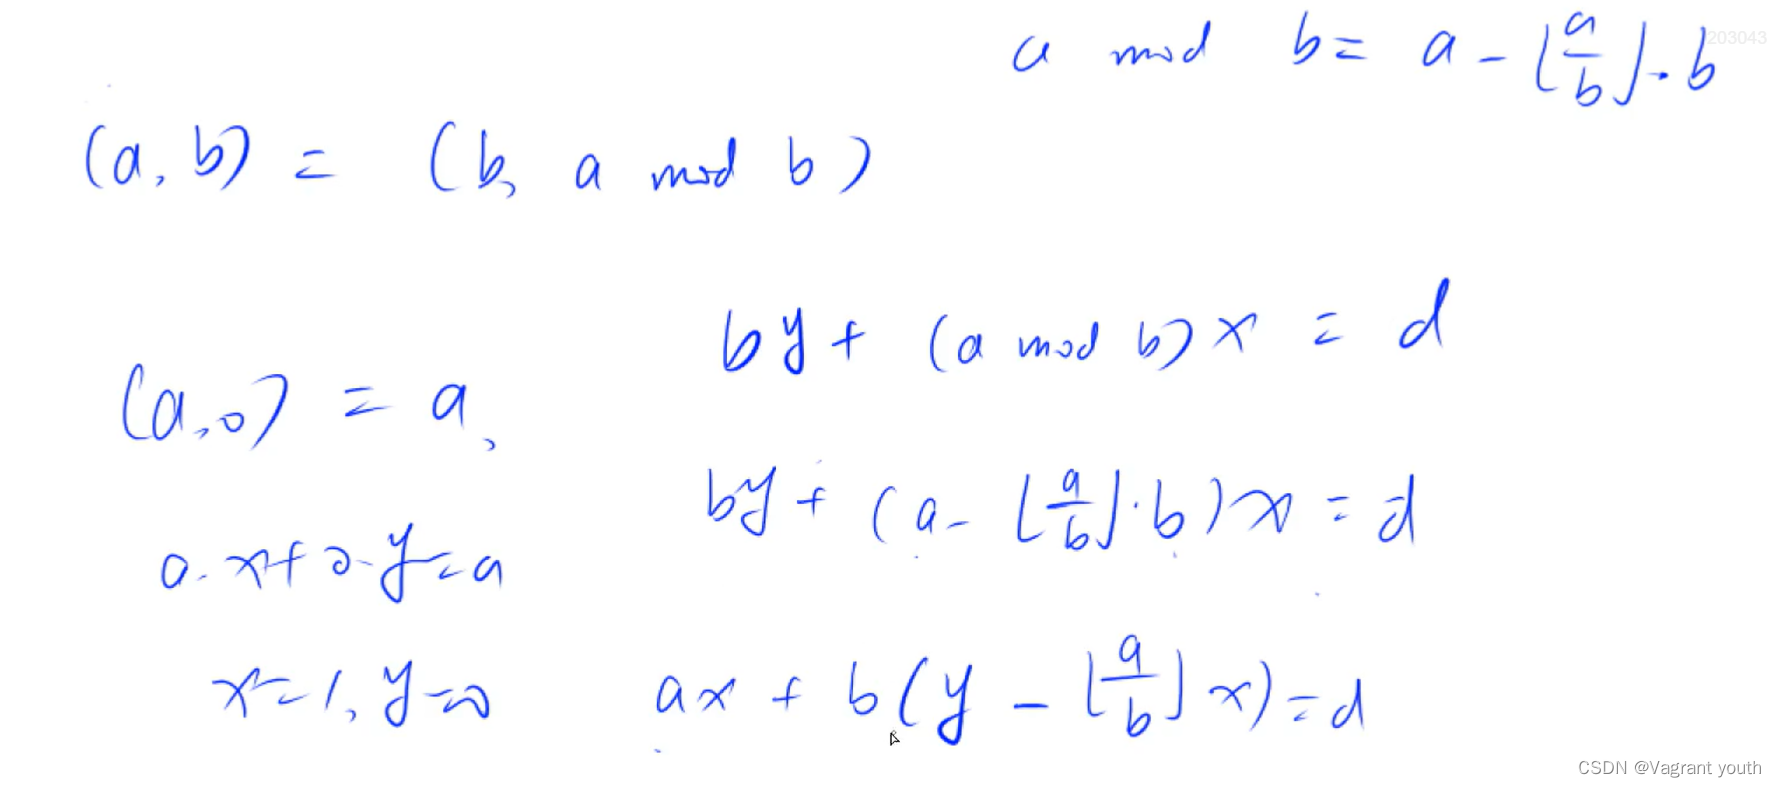 a mod b = a - ⌊a/b⌋·b
203043
(a, b) = (b, a mod b)
by + (a mod b) x = d
(a, 0) = a,
by + (a - ⌊a/b⌋·b) x = d
a·x + 0·y = a
x = 1, y = 0
ax + b(y - ⌊a/b⌋ x) = d
CSDN @Vagrant youth